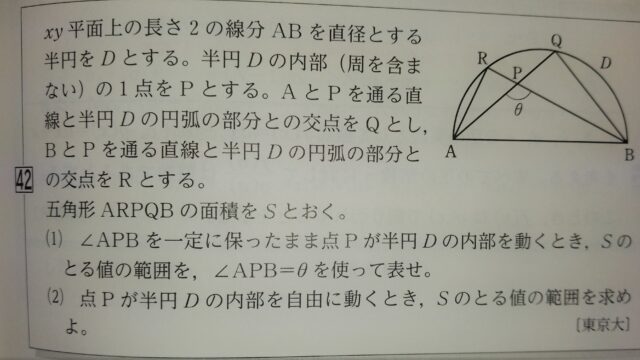 xy平面上の長さ2の線分ABを直径とする
半円をDとする。半円Dの内部(周を含ま
ない)の1点をPとする。AとPを通る直
線と半円Dの円弧の部分との交点をQとし,
BとPを通る直線と半円Dの円弧の部分と
42 の交点をRとする。
五角形ARPQBの面積をSとおく。
(1) ∠APBを一定に保ったまま点Pが半円Dの内部を動くとき,Sの
とる値の範囲を,∠APB=θを使って表せ。
(2) 点Pが半円Dの内部を自由に動くとき,Sのとる値の範囲を求め
よ。 [東京大]
Q
R
D
P
θ
A
B